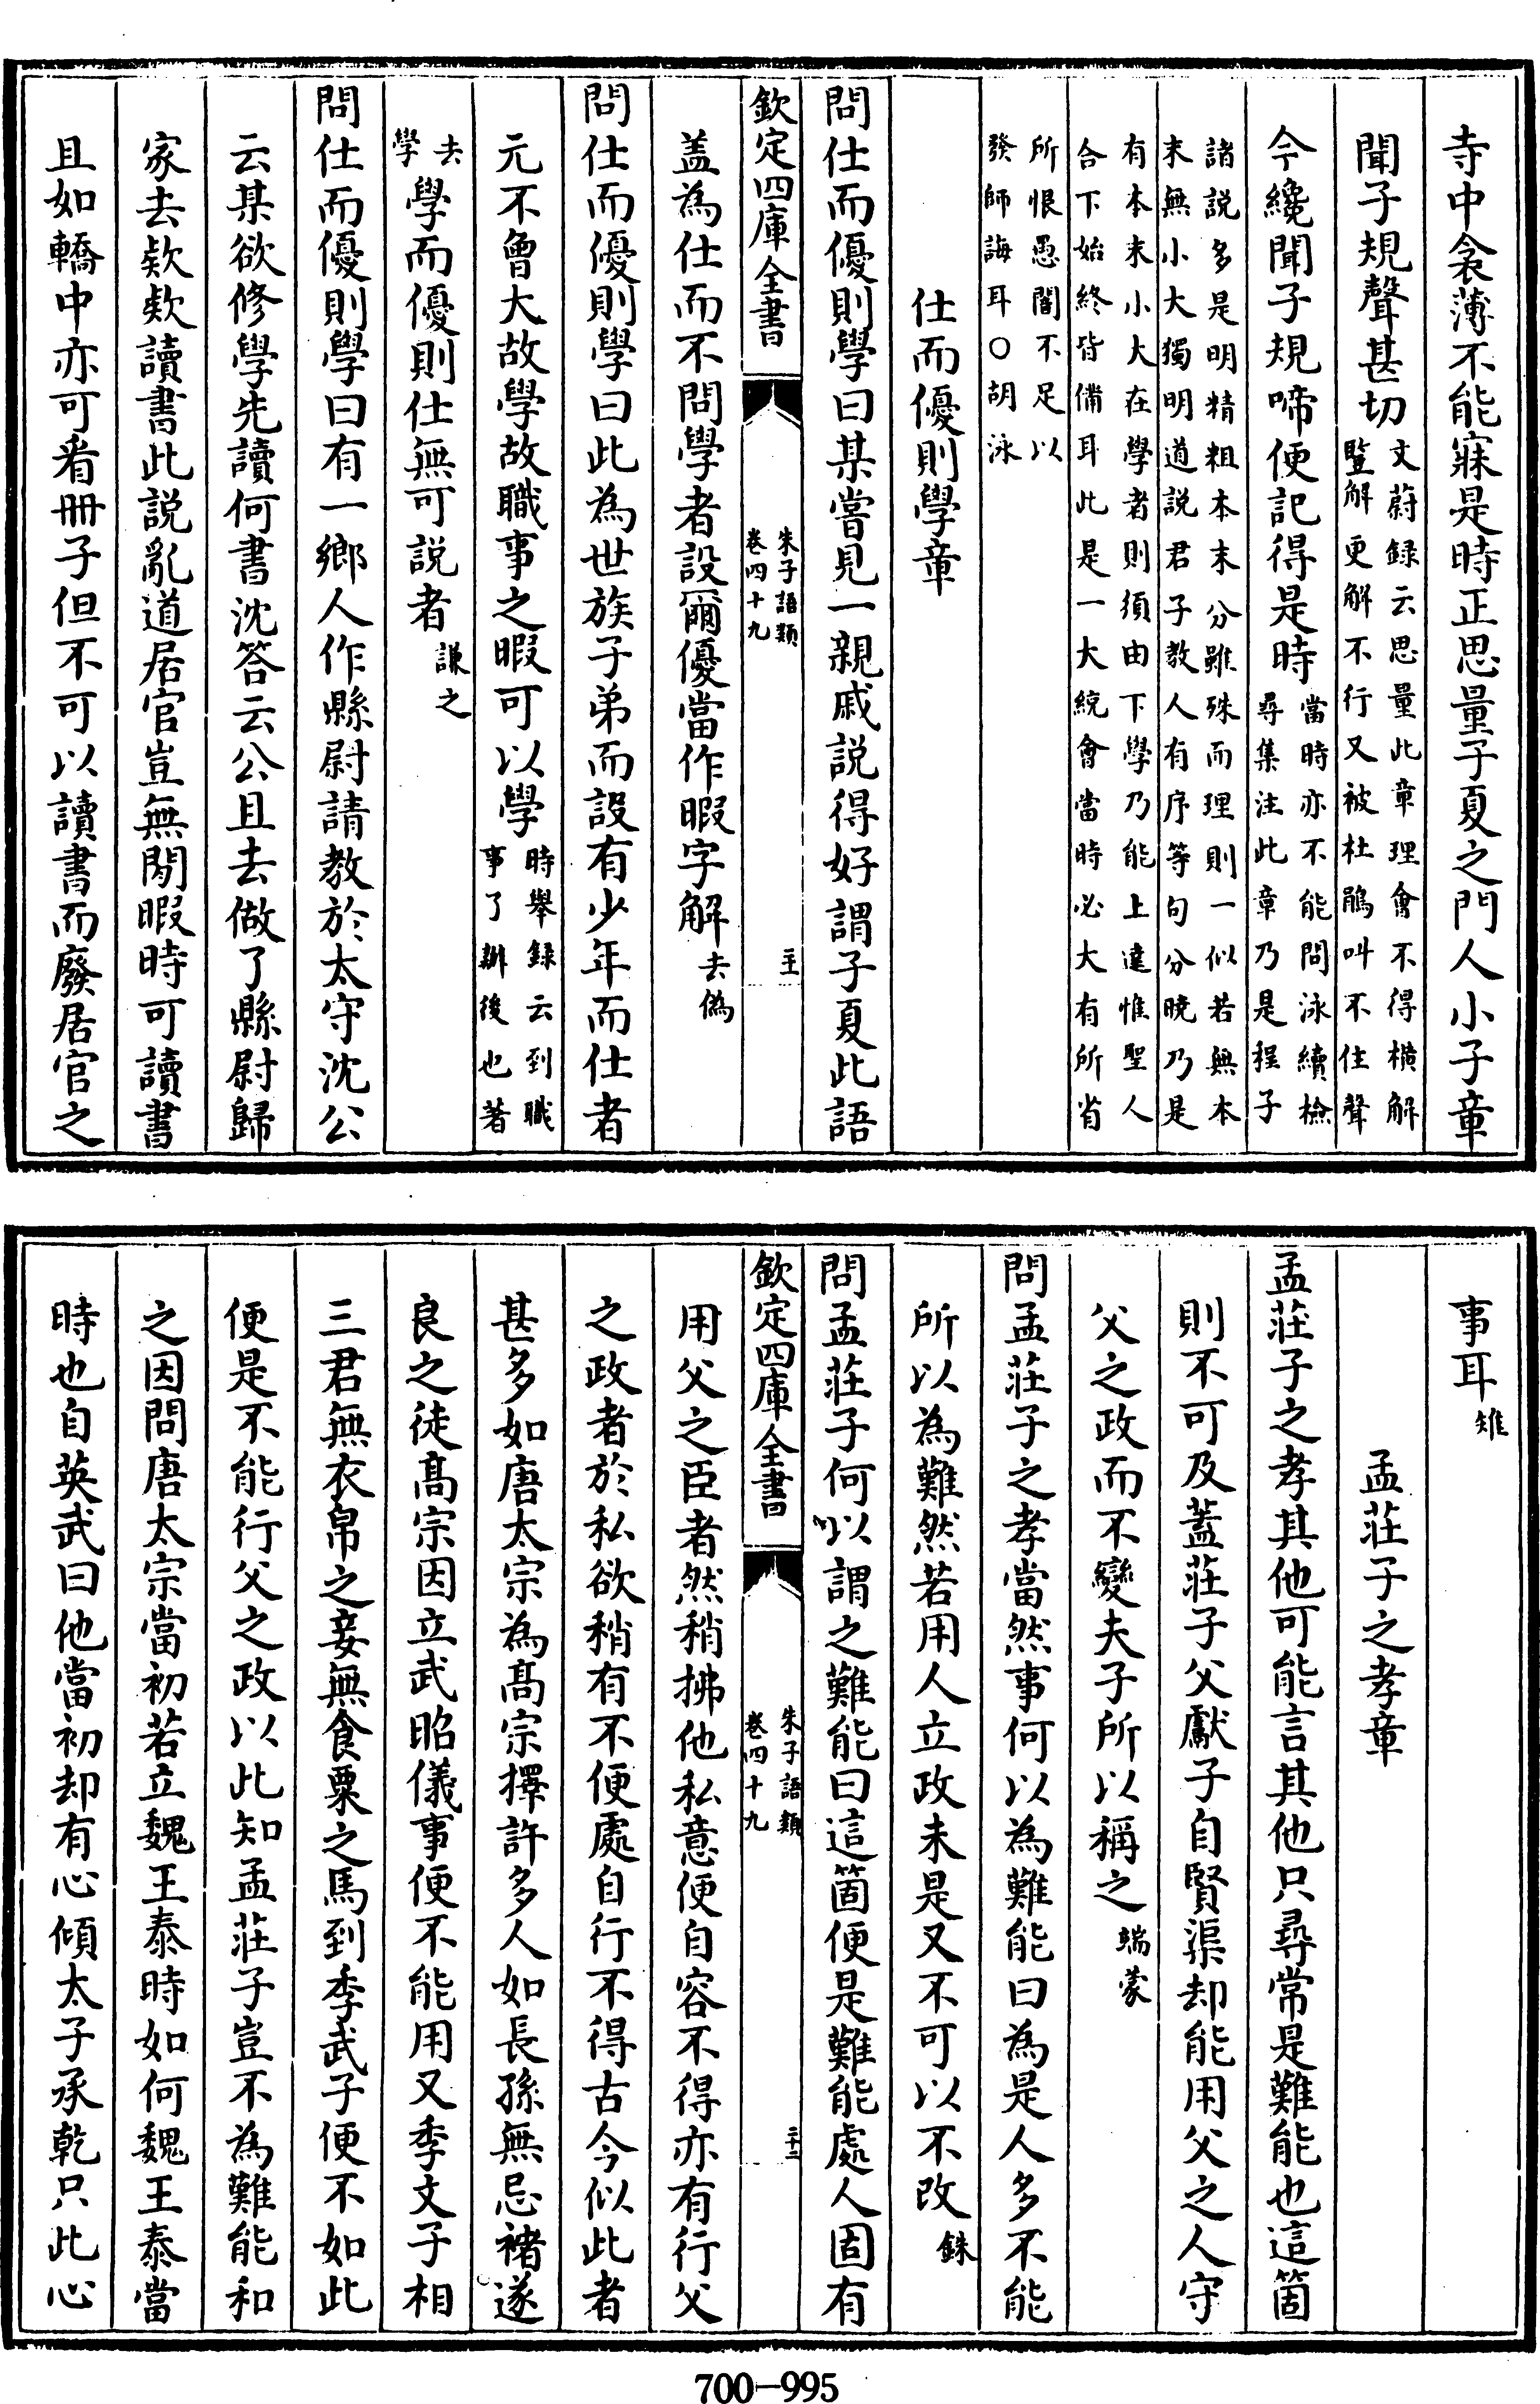 寺中衾薄不能寐是時正思量子夏之門人小子章
聞子規聲甚切文蔚録云思量此章理會不得横解
竪解更解不行又被杜鵑叫不住聲
今纔聞子規啼便記得是時當時亦不能問泳續檢
尋集注此章乃是程子
諸説多是明精粗本末分雖殊而理則一似若無本
末無小大獨明道説君子教人有序等句分曉乃是
有本末小大在學者則須由下學乃能上達惟聖人
合下始終皆備耳此是一大統會當時必大有所省
所恨愚闇不足以
發師誨耳○胡泳
仕而優則學章
問仕而優則學曰某嘗見一親戚説得好謂子夏此語
欽定四庫全書
朱子語類
卷四十九
二十一
盖為仕而不問學者設爾優當作暇字解去偽
問仕而優則學曰此為世族子弟而設有少年而仕者
元不曾大故學故職事之暇可以學時舉録云到職
事了辦後也著
去
學學而優則仕無可説者謙之
問仕而優則學曰有一鄉人作縣尉請教於太守沈公
云某欲修學先讀何書沈答云公且去做了縣尉歸
家去欵欵讀書此説亂道居官豈無閒暇時可讀書
且如轎中亦可看冊子但不可以讀書而廢居官之
事耳雉
孟莊子之孝章
孟莊子之孝其他可能言其他只尋常是難能也這箇
則不可及蓋莊子父獻子自賢渠却能用父之人守
父之政而不變夫子所以稱之端蒙
問孟莊子之孝當然事何以為難能曰為是人多不能
所以為難然若用人立政未是又不可以不改銖
問孟莊子何以謂之難能曰這箇便是難能處人固有
欽定四庫全書
朱子語類
卷四十九
二十二
用父之臣者然稍拂他私意便自容不得亦有行父
之政者於私欲稍有不便處自行不得古今似此者
甚多如唐太宗為髙宗擇許多人如長孫無忌褚遂
良之徒髙宗因立武昭儀事便不能用又季文子相
三君無衣帛之妾無食粟之馬到季武子便不如此
便是不能行父之政以此知孟莊子豈不為難能和
之因問唐太宗當初若立魏王泰時如何魏王泰當
時也自英武曰他當初却有心傾太子承乾只此心
700-995